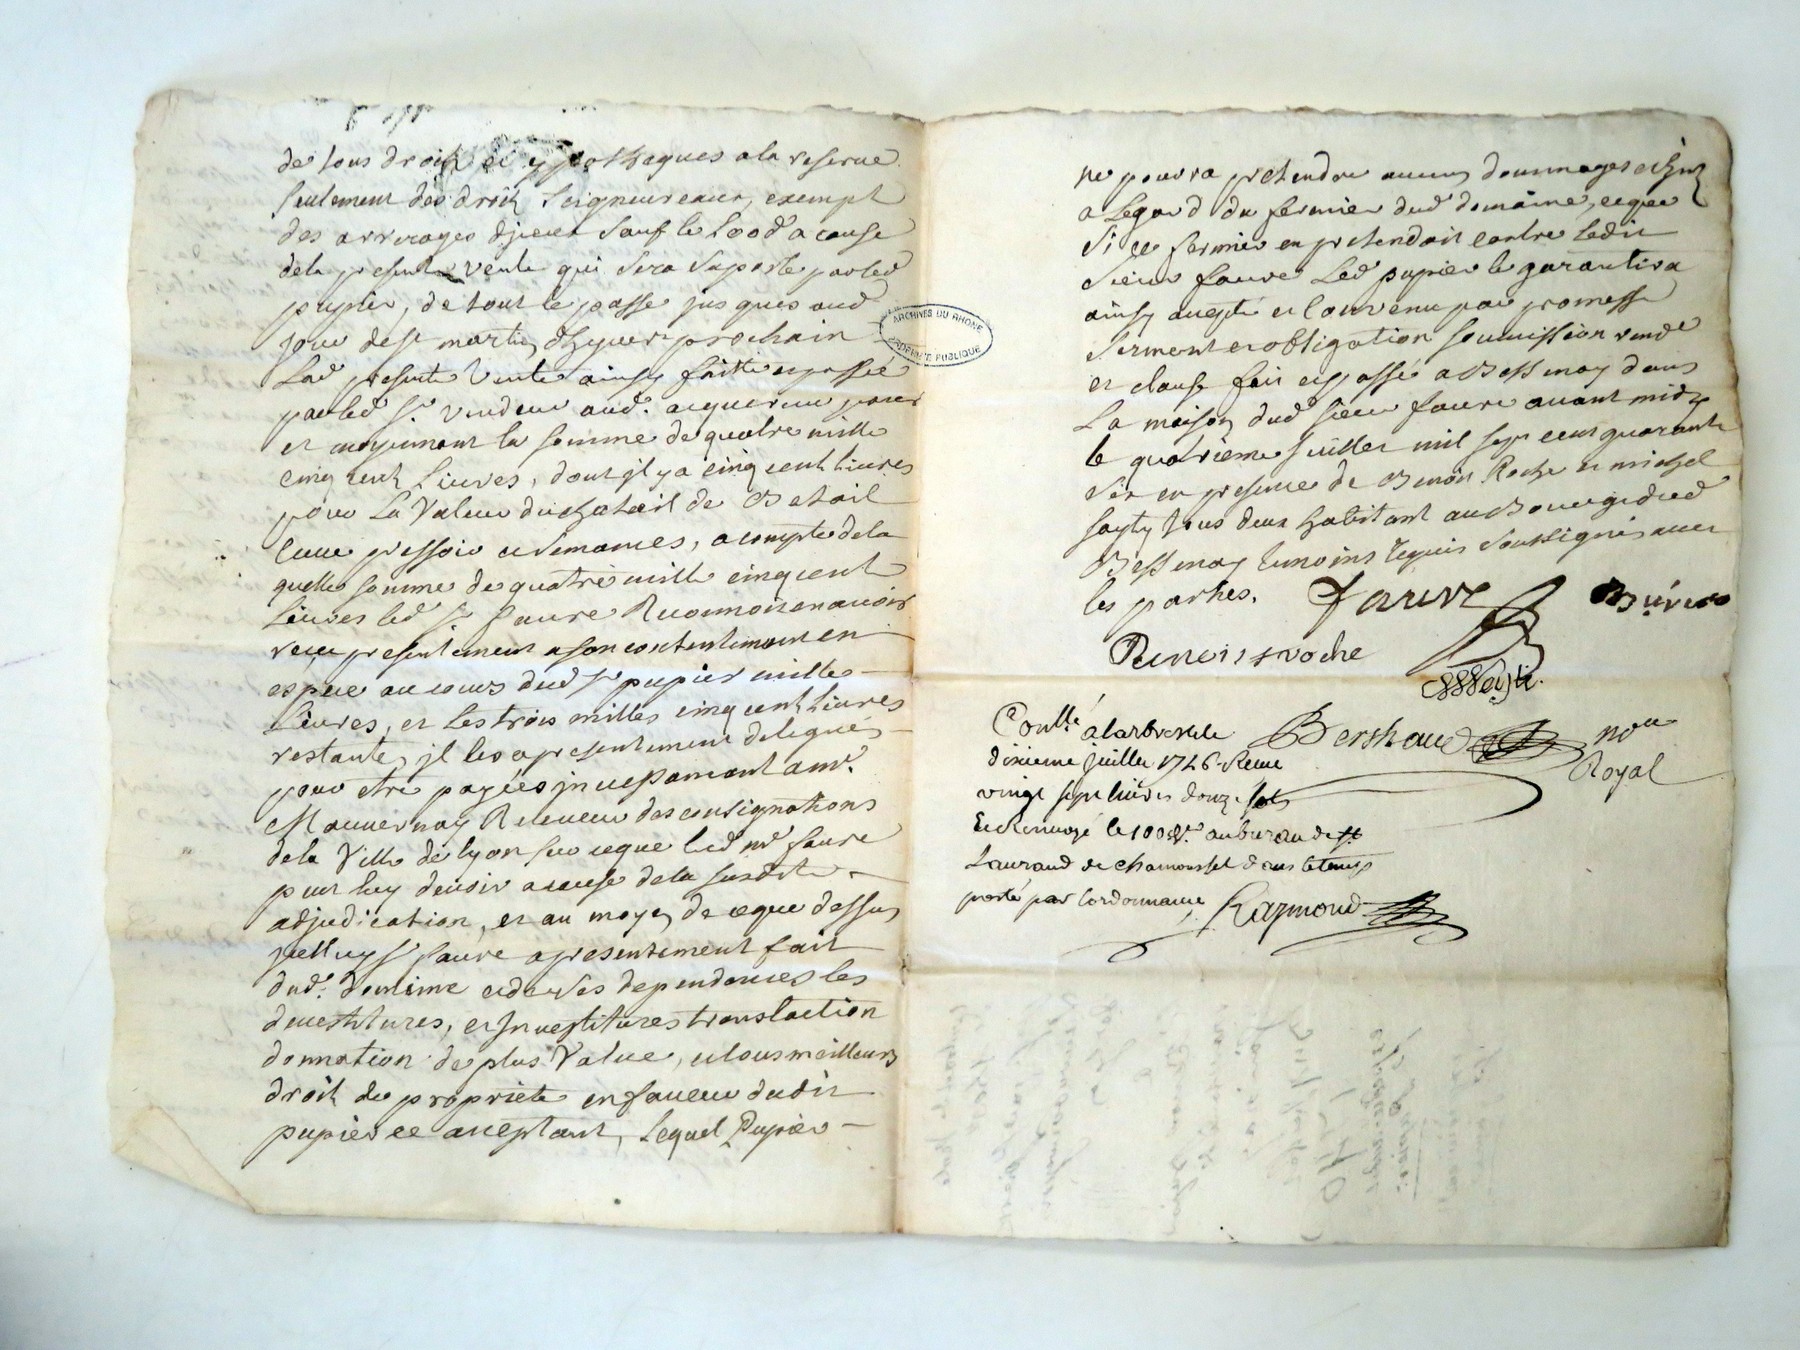 de tous droits et ypothaques a la reserve
seulement des droits seigneureaux, exempt
des arrerages d'jceux sauf le lood a cause
de la presente vente qui sera suporté par led
pupier, de tout le passe jusques aud
jour de st martin d'hyver prochain
Lad presente vente ainsy faitte et passéé
par led sr. vendeur aud. acquereur pour
et moyennant la somme de quatre mille
cinq cent Livres, dont jl y a cinq cent livres
pour La Valeur du chatail de Betail
Cuve pressoir et semances, a compte de la
quelle somme de quatre mille cinq cent
Livres led sr. faure Reconnoit en avoir
receu presentement a son contentement en
espece au cours dud sr pupier mille
Livres, et les trois milles cinq cent livres
restante, jl les a presentement delegués
pour etre payéés jncessament a mr.
Mauvernay Receveur des consignations
de la Ville de lyon sur ce que led mr faure
peut luy devoir a cause de la susdite
adjudication, et au moyen de ce que dessus
jcelluy sr faure a presentement fait
dud. domaine et de ses dependences les
devestitures, et Jnvestitures translaction
donnation de plus Value, et tous meilleurs
droit de propriété en faveur dudit
pupier ce acceptant, Lequel Pupier
ARCHIVES DU RHONE
PROPRIÉTÉ PUBLIQUE
ne pourra pretendre aucuns dommages et jnts
a Legard du fermier dud domaine, et que
si ce fermier en pretendoit contre ledit
sieur faure Led pupier le garantira
ainsy accepté et convenu par promesse
serment et obligation soumission rende
et clause fait et passé a Bessenay dans
La maison dud sieur faure avant midy
le quatrieme juillet mil sept cent quarante
six en presence de Benoit Roche et michel
sayty tous deux habitant au Bourg dud
Bessenay temoins requis soussignés avec
les parties. faure
Benoit roche
Conllé a larbresle Berthaud nore
dixieme juillet 1746. Receu Royal
vingt sept livres douze sols
Et Renvoyé le 100e dr. au bureau de st
Laurand de chamousset dans le temps
porté par l'ordonnance Raymond